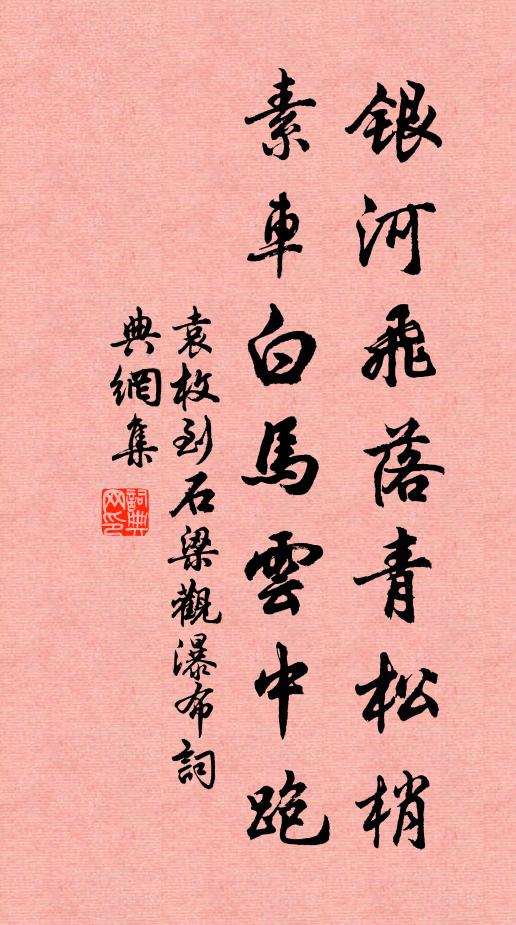 銀河飛落青松梢
素車白馬雲中跑
袁枚到石梁觀瀑布詞
典網集
詞典網印